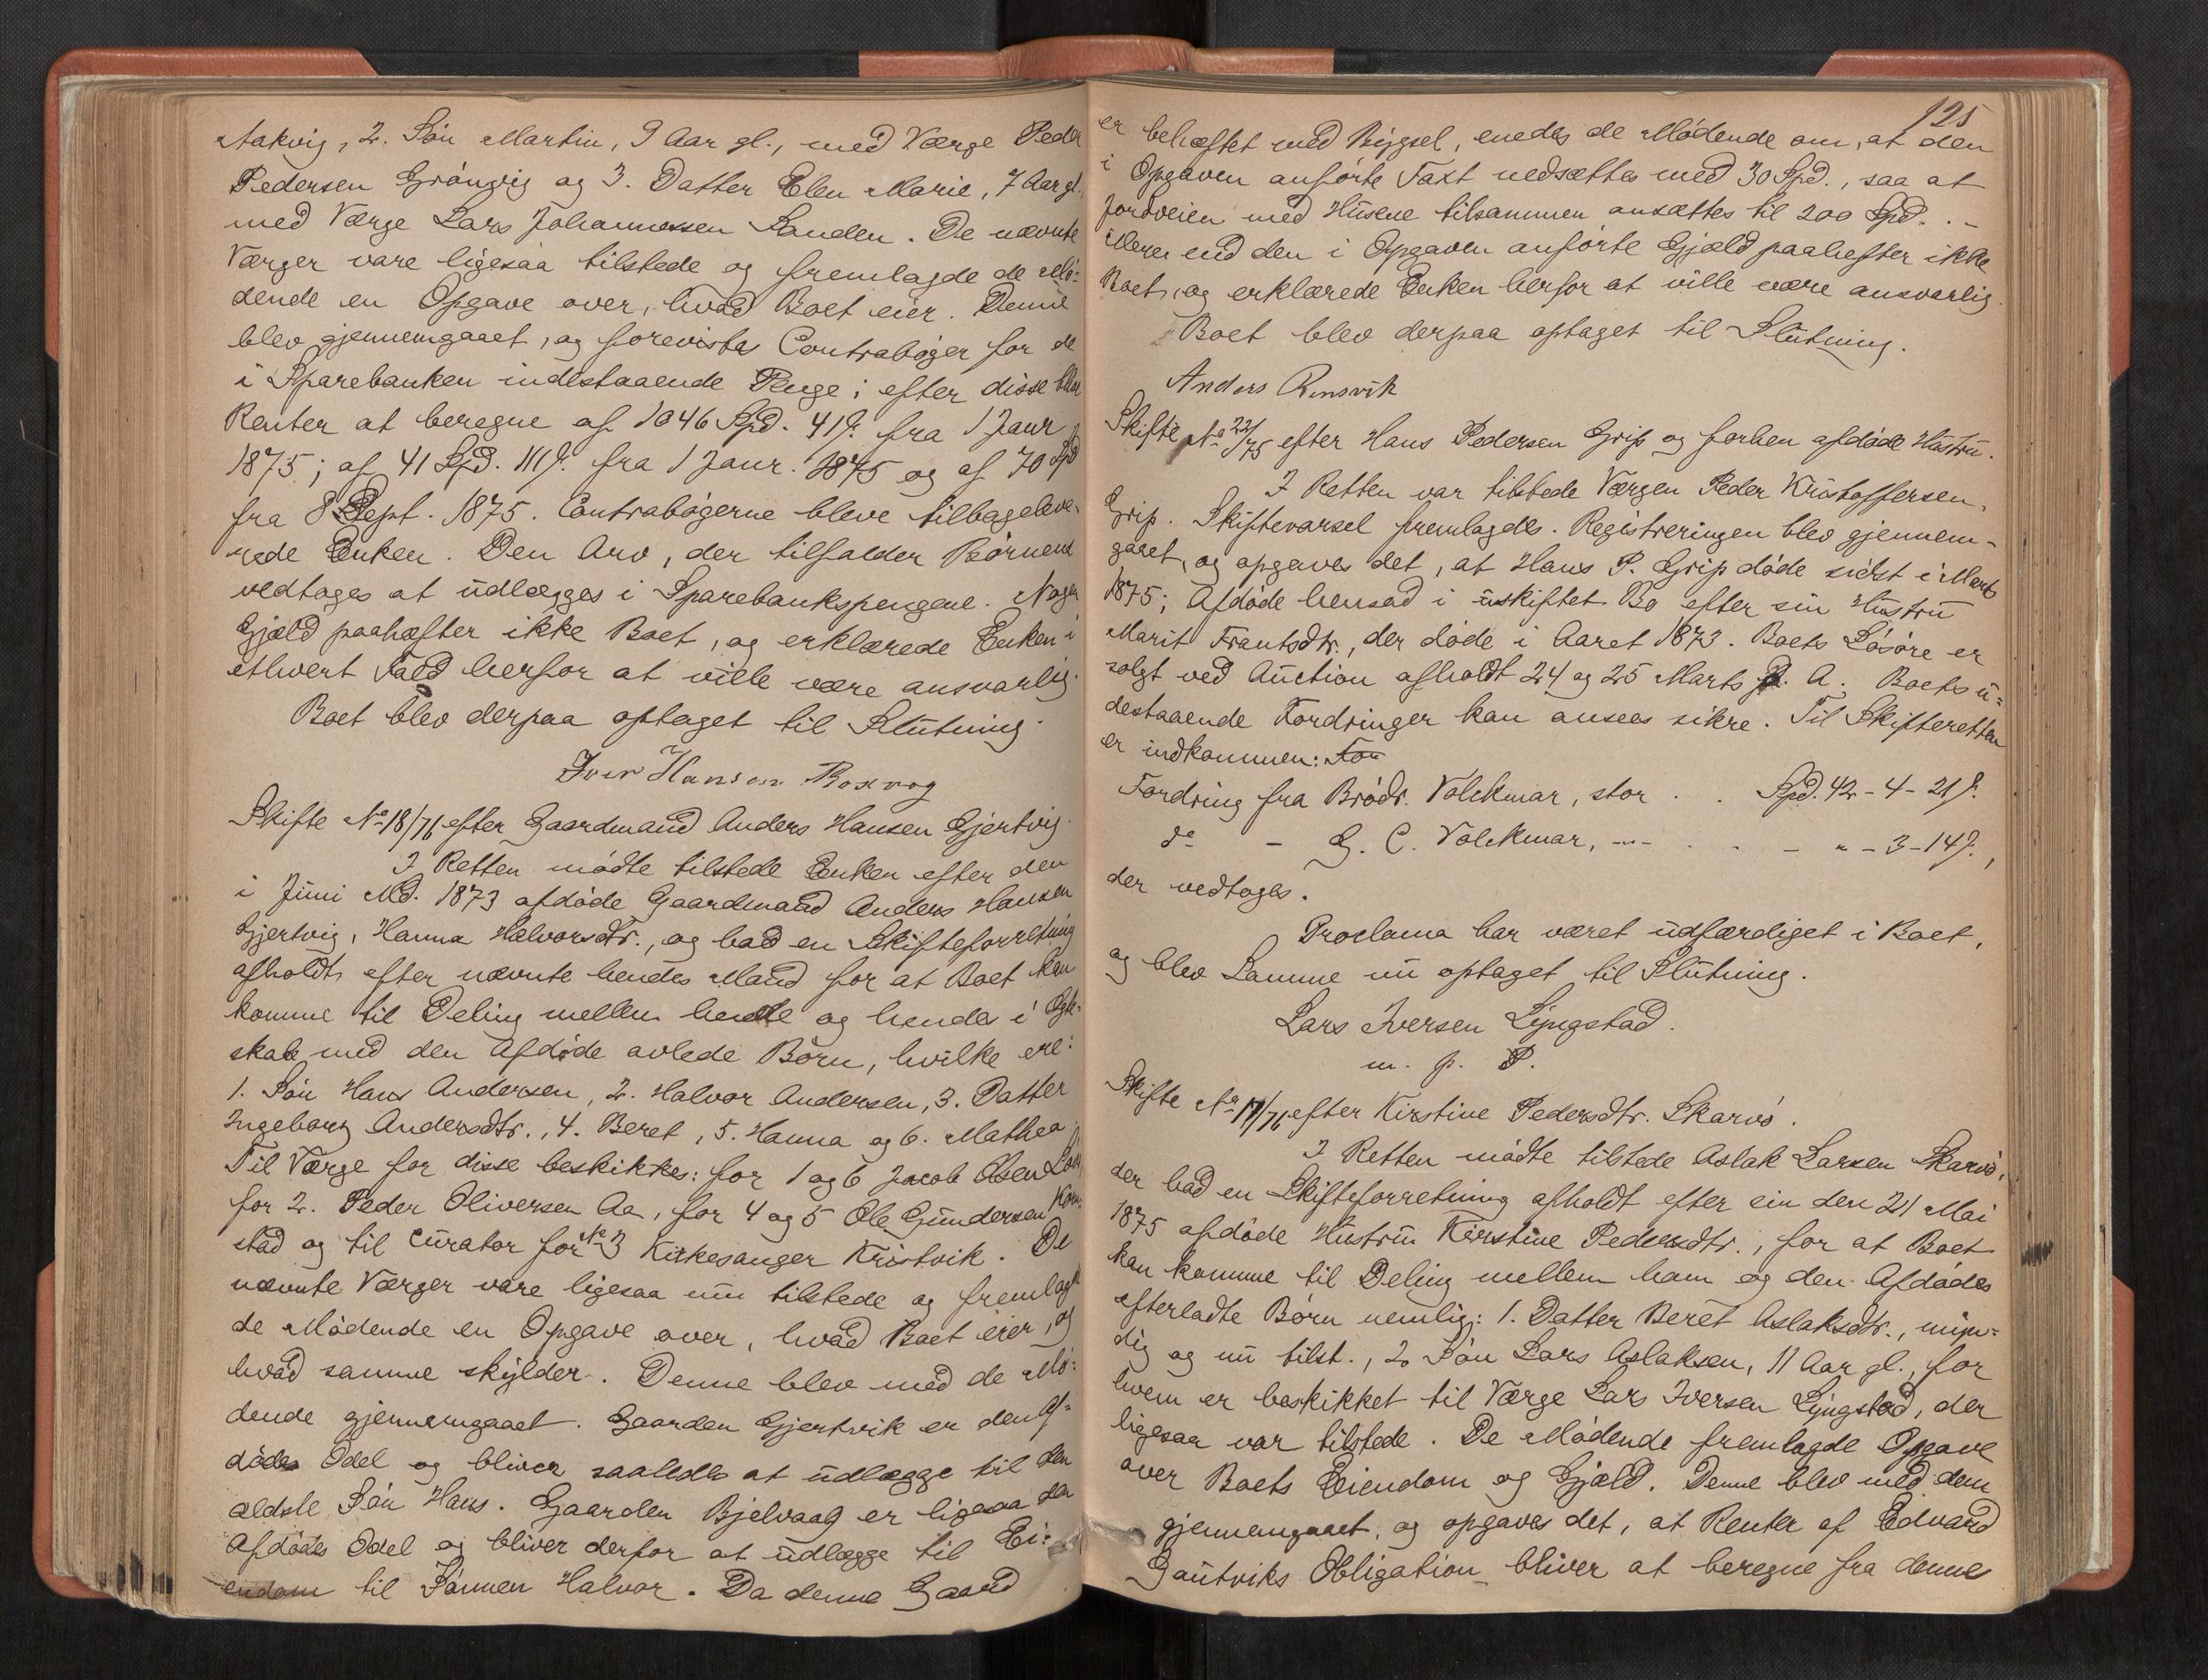 Aakvig, 2. Søn Martin, 9 Aar gl., med Værge Peder
Pedersen Grønvig og 3. Datter Elen Marie, 7 Aar gl.
med Værge Lars Johannessen Sanden. De nævnte
Værger vare ligesaa tilstede og fremlagde de Mø-
dende en Opgave over, hvad Boet eier. Denne
blev gjennemgaaet, og forevistes Contrabøger for de
i Sparebanken indestaaende Penge; efter disse blive
Renter at beregne af 1046 Spd. 41 ß. fra 1 Janr.
1875; af 41 Spd. 111 ß. fra 1 Janr. 1875 og af 70 Spd
fra 8 Sept. 1875. Contrabøgerne bleve tilbageleve-
rede Enken. Den Arv, der tilfalder Børnene
vedtoges at udlægges i Sparebankspengene. Nogen
Gjæld paahæfter ikke Boet, og erklærede Enken i
ethvert Fald herfor at ville være ansvarlig.
Boet blev derpaa optaget til Slutning.
Iver Hansen Boxvog
Skifte No 18/76 efter Gaardmand Anders Hansen Gjertvig.
I Retten mødte tilstede Enken efter den
i Juni Md. 1873 afdøde Gaardmand Anders Hansen
Gjertvig, Hanna Halvorsdtr., og bad en Skifteforretning
afholdt efter nævnte hendes Mand for at Boet kan
komme til Deling mellem hende og hendes i Ægte-
skab med den Afdøde avlede Børn, hvilke ere:
1. Søn Hans Andersen, 2. Halvor Andersen, 3. Datter
Ingeborg Andersdtr., 4. Beret, 5. Hanna og 6. Mathea.
Til Værge for disse beskikkes: for 1 og 6 Jacob Olsen
for 2. Peder Oliversen Aa, for 4 og 5 Ole Gundersen Kon-
stad og til Curator for No 3 Kirkesanger Kristvik. De
nævnte Værger vare ligesaa nu tilstede og fremlagde
de Mødende en Opgave over, hvad Boet eier, og
hvad samme skylder. Denne blev med de Mø-
dende gjennemgaaet. Gaarden Gjertvik er den Af-
dødes Odel og bliver saaledes at udlægge til den
ældste Søn Hans. Gaarden Bjelvaag er ligesaa den
Afdødes Odel og bliver derfor at udlægge til Ei-
endom til Sønnen Halvor. Da denne Gaard
125
er behæftet med Bygsel, enedes de Mødende om, at den
i Opgaven anførte Taxt nedsættes med 30 Spd., saa at
Jordveien med Husene tilsammen ansættes til 200 Spd. . -
Mere end den i Opgaven anførte Gjæld paahefter ikke
Boet, og erklærede Enken herfor at ville være ansvarlig.
Boet blev derpaa optaget til Slutning.
Anders Rensvik
Skifte No 22/75 efter Hans Pedersen Grip og forhen afdøde Hustru.
I Retten var tilstede Værgen Peder Kristoffersen,
Grip. Skiftevarsel fremlagdes. Registreringen blev gjennem-
gaaet, og opgaves det, at Hans P. Grip døde sidst i Marts
1875; Afdøde hensad i uskiftet Bo efter sin Hustru
Marit Frantsdtr., der døde i Aaret 1873. Boets Løsøre er
solgt ved Auction afholdt 24 og 25 Marts p. A. Boets u-
destaaende Fordringer kan ansees sikre. Til Skifteretten
er indkommen: For
Fordring fra Brødr. Volckmar, stor . . Spd. 42 - 4 - 21 ß.
do - G. C. Volckmar, -"- . . - " - 3 - 14 ß.,
der vedtoges.
Proclama har været udfærdiget i Boet,
og blev Samme nu optaget til Slutning.
Lars Iversen Lyngstad.
m. p. P.
Skifte No 17/76 efter Kirstine Pedersdtr. Skarvø.
I Retten mødte tilstede Aslak Larsen Skarvø,
der bad en Skifteforretning afholdt efter sin den 21 Mai
1875 afdøde Hustru Kirstine Pedersdtr., for at Boet
kan komme til Deling mellem ham og den Afdødes
efterladte Børn nemlig: 1. Datter Beret Aslaksdtr., myn-
dig og nu tilst., 2. Søn Lars Aslaksen, 11 Aar gl., for
hvem er beskikket til Værge Lars Iversen Lyngstad, der
ligesaa var tilstede. De Mødende fremlagde Opgave
over Boets Eiendom og Gjæld. Denne blev med dem
gjennemgaaet, og opgaves det, at Renter af Edvard
Gautviks Obligation bliver at beregne fra dennes